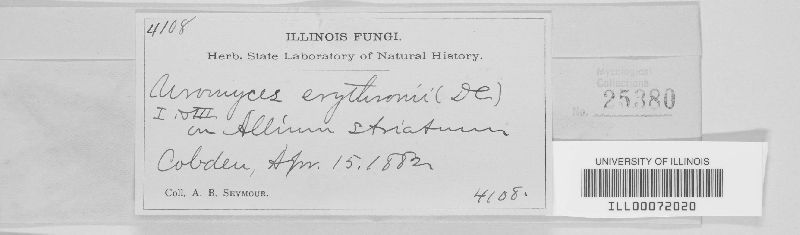 4108
ILLINOIS FUNGI.
Herb. State Laboratory of Natural History.
Uromyces erythronii (DC.)
I III
on Allium striatum
Cobden, Apr. 15. 1882
Coll. A. B. Seymour.
4108.
Mycological
Collections
No. 25380
UNIVERSITY OF ILLINOIS
ILL00072020